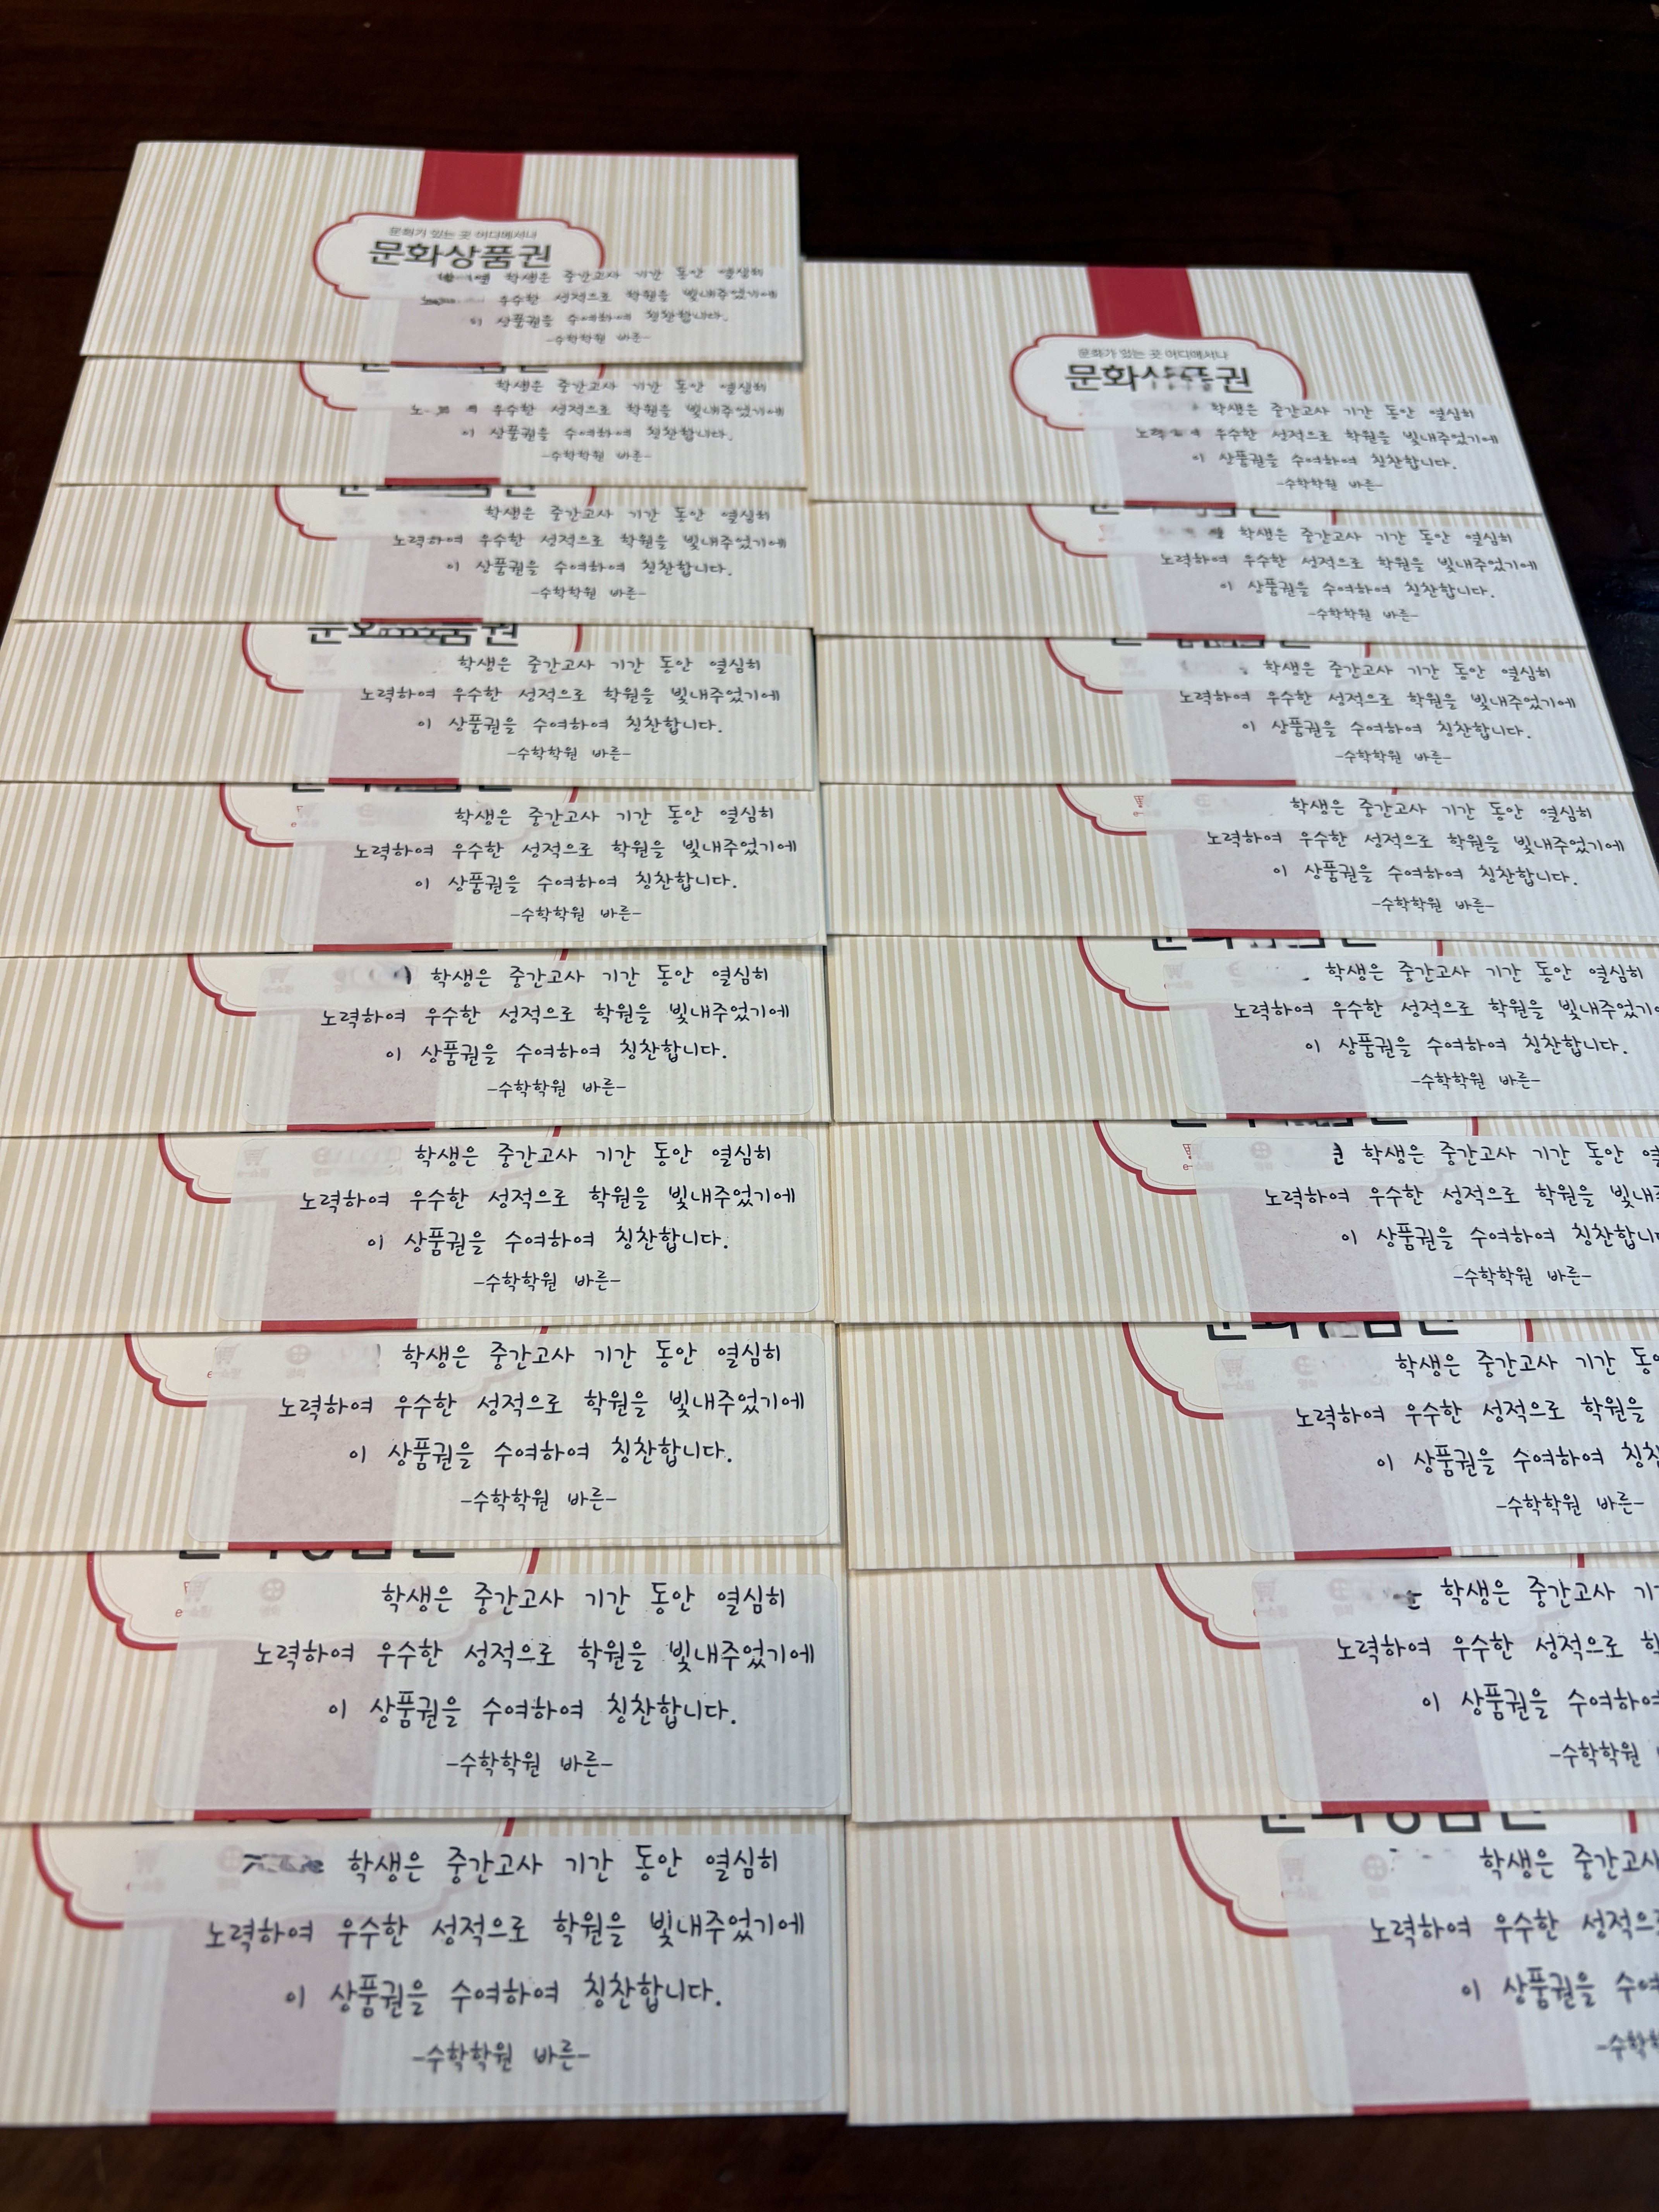 문화가 있는 곳 어디에서나
문화상품권
학생은 중간고사 기간 동안 열심히
우수한 성적으로 학원을 빛내주었기에
이 상품권을 수여하여 칭찬합니다.
-수학학원 바른-
학생은 중간고사 기간 동안 열심히
우수한 성적으로 학원을 빛내주었기에
이 상품권을 수여하여 칭찬합니다.
-수학학원 바른-
학생은 중간고사 기간 동안 열심히
노력하여 우수한 성적으로 학원을 빛내주었기에
이 상품권을 수여하여 칭찬합니다.
-수학학원 바른-
학생은 중간고사 기간 동안 열심히
노력하여 우수한 성적으로 학원을 빛내주었기에
이 상품권을 수여하여 칭찬합니다.
-수학학원 바른-
학생은 중간고사 기간 동안 열심히
노력하여 우수한 성적으로 학원을 빛내주었기에
이 상품권을 수여하여 칭찬합니다.
-수학학원 바른-
학생은 중간고사 기간 동안 열심히
노력하여 우수한 성적으로 학원을 빛내주었기에
이 상품권을 수여하여 칭찬합니다.
-수학학원 바른-
학생은 중간고사 기간 동안 열심히
노력하여 우수한 성적으로 학원을 빛내주었기에
이 상품권을 수여하여 칭찬합니다.
-수학학원 바른-
학생은 중간고사 기간 동안 열심히
노력하여 우수한 성적으로 학원을 빛내주었기에
이 상품권을 수여하여 칭찬합니다.
-수학학원 바른-
학생은 중간고사 기간 동안 열심히
노력하여 우수한 성적으로 학원을 빛내주었기에
이 상품권을 수여하여 칭찬합니다.
-수학학원 바른-
학생은 중간고사 기간 동안 열심히
노력하여 우수한 성적으로 학원을 빛내주었기에
이 상품권을 수여하여 칭찬합니다.
-수학학원 바른-
문화가 있는 곳 어디에서나
문화상품권
학생은 중간고사 기간 동안 열심히
우수한 성적으로 학원을 빛내주었기에
이 상품권을 수여하여 칭찬합니다.
-수학학원 바른-
학생은 중간고사 기간 동안 열심히
노력하여 우수한 성적으로 학원을 빛내주었기에
이 상품권을 수여하여 칭찬합니다.
-수학학원 바른-
학생은 중간고사 기간 동안 열심히
노력하여 우수한 성적으로 학원을 빛내주었기에
이 상품권을 수여하여 칭찬합니다.
-수학학원 바른-
학생은 중간고사 기간 동안 열심히
노력하여 우수한 성적으로 학원을 빛내주었기에
이 상품권을 수여하여 칭찬합니다.
-수학학원 바른-
학생은 중간고사 기간 동안 열심히
노력하여 우수한 성적으로 학원을 빛내주었기에
이 상품권을 수여하여 칭찬합니다.
-수학학원 바른-
학생은 중간고사 기간 동안
노력하여 우수한 성적으로 학원을
이 상품권을 수여하여
-수학학원 바른-
학생은 중간고사 기간
노력하여 우수한 성적으로 학원을
이 상품권을 수여하여
-수학학원 바른-
학생은 중간고사
노력하여 우수한 성적으로
이 상품권을
-수학학원
학생은
노력하여 우수한
이 상품권을